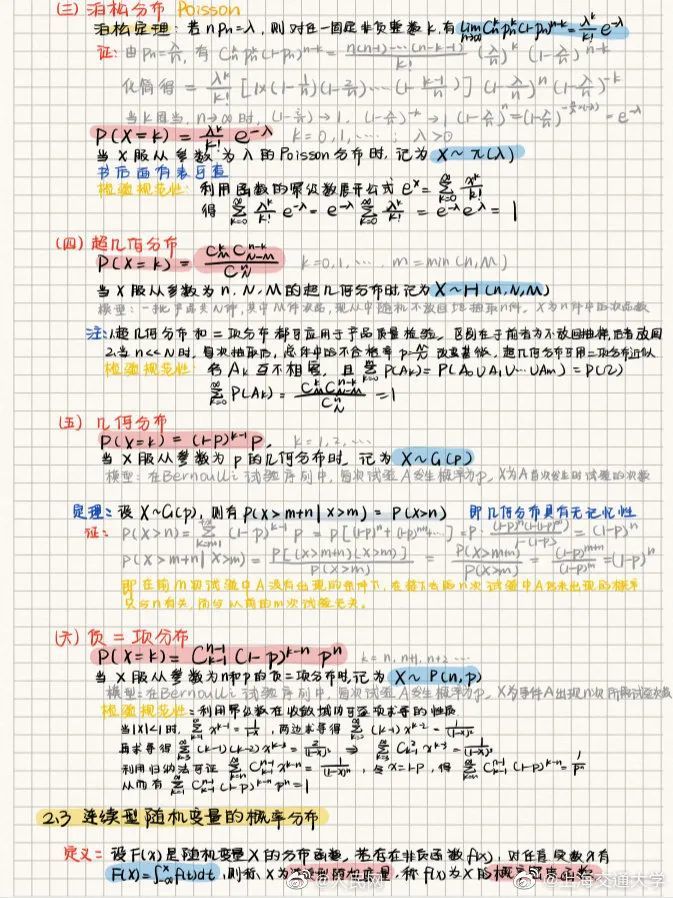 (三) 泊松分布 Poisson
泊松定理: 若 nPn=λ, 则对任一固定非负整数 k, 有 lim_{n→∞} C_n^k p_n^k (1-p_n)^{n-k} = λ^k/k! e^{-λ}
证: 由 Pn=λ/n, 有 C_n^k p_n^k (1-p_n)^{n-k} = n(n-1)…(n-k-1)/k! (λ/n)^k (1-λ/n)^{n-k}
化简得 = λ^k/k! [1×(1-1/n)(1-2/n)…(1-(k-1)/n)] (1-λ/n)^n (1-λ/n)^{-k}
当 k 固定, n→∞ 时,
P(X=k) = λ^k/k! e^{-λ} k=0,1,… ; λ>0
当 X 服从参数为 λ 的 Poisson 分布时, 记为 X~π(λ)
书后面有表可查
检验规范性: 利用函数的幂级数展开公式 e^x = Σ_{k=0}^∞ x^k/k!
得 Σ_{k=0}^∞ λ^k/k! e^{-λ} = e^{-λ} Σ_{k=0}^∞ λ^k/k! = e^{-λ}e^{λ} = 1
(四) 超几何分布
P(X=k) = C_M^k C_{N-M}^{n-k} / C_N^n k=0,1,… m=min(n,M)
当 X 服从参数为 n, N, M 的超几何分布时, 记为 X~H(n,N,M)
模型: 一批产品共N件, 其中M件次品, 现从中随机不放回地抽取n件, X为n件中的次品数
注: 1.超几何分布和二项分布都可应用于产品质量检验, 区别在于前者为不放回抽样, 后者放回
2.当 n<<N 时, 每次抽取后, 改变甚微, 超几何分布可用二项分布近似
检验规范性: 若 Ak 互不相容, 且 ΣP(Ak) = P(A0∪A1∪…∪Am) = P(Ω)
Σ_{k=0}^∞ P(Ak) = C_M^k C_{N-M}^{n-k} / C_N^n = 1
(五) 几何分布
P(X=k) = (1-P)^{k-1} P, k=1,2,…
当 X 服从参数为 p 的几何分布时, 记为 X~G(p)
模型: 在Bernoulli试验序列中, 每次试验A发生概率为p, X为A首次发生时试验的次数
定理: 设 X~G(p), 则有 P(X>m+n|X>m) = P(X>n) 即几何分布具有无记忆性
证: P(X>n) = Σ_{k=n+1}^{+∞} (1-p)^{k-1} p = p[(1-p)^n+(1-p)^{n+1}+…] = (1-p)^n
P(X>m+n|X>m) = P[(X>m+n)(X>m)]/P(X>m) = P(X>m+n)/P(X>m) = (1-p)^{m+n}/(1-p)^m = (1-p)^n
即在前m次试验中A没有出现的条件下, 在接下去的n次试验中A仍未出现的概率
只与n有关, 而与以前的m次试验无关。
(六) 负二项分布
P(X=k) = C_{k-1}^{n-1} (1-p)^{k-n} p^n k=n, n+1, n+2 …
当 X 服从参数为n和p的负二项分布时, 记为 X~P(n,p)
模型: 在Bernoulli试验序列中, 每次试验A发生概率为p, X为事件A出现n次所需试验次数
检验规范性: 利用幂级数在收敛域内可逐项求导的性质
当|X|<1时, Σ_{k=1}^∞ x^{k-1} = 1/(1-x), 两边求导得 Σ_{k=2}^∞ (k-1)x^{k-2} = 1/(1-x)^2
再求导得 Σ_{k=3}^∞ (k-1)(k-2)x^{k-3} = 2/(1-x)^3 ⇒ Σ_{k=3}^∞ C_{k-1}^2 x^{k-3} = 1/(1-x)^3
利用归纳法可证 Σ_{k=n}^∞ C_{k-1}^{n-1} x^{k-n} = 1/(1-x)^n, 令x=1-p, 得 Σ_{k=n}^∞ C_{k-1}^{n-1} (1-p)^{k-n} = 1/p^n
从而有 Σ C_{k-1}^{n-1} (1-p)^{k-n} p^n = 1
2.3 连续型随机变量的概率分布
定义: 设F(x)是随机变量X的分布函数, 若存在非负函数f(x), 对任意实数x有
F(X)=∫_{-∞}^x f(t)dt, 则称X为连续型随机变量, 称f(x)为X的概率密度函数
@人民网 @上海交通大学